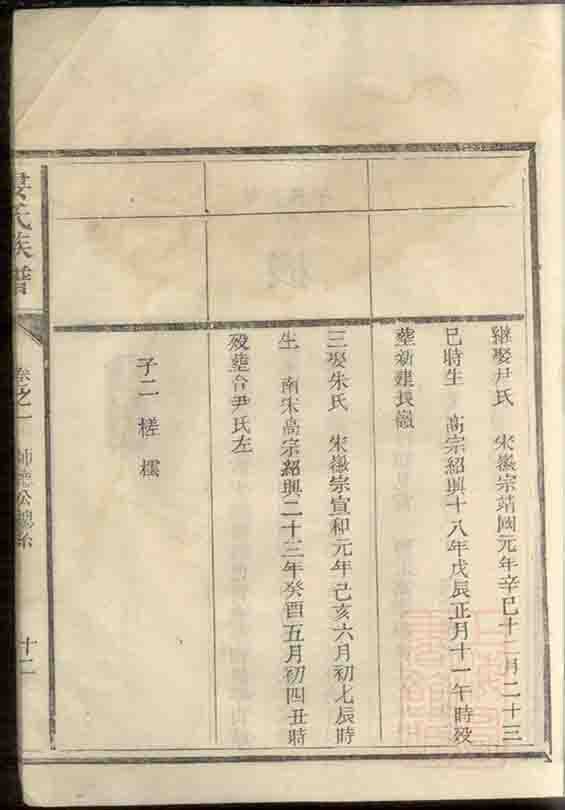 繼娶尹氏　宋徽宗靖國元年辛巳十二月二十三
巳時生　高宗紹興十八年戊辰正月十一午時歿
葬新建長嶺
三娶朱氏　宋徽宗宣和元年己亥六月初七辰時
生　南宋高宗紹興二十三年癸酉五月初四丑時
歿葬合尹氏左
子二 槎 檽
氏族譜
卷之一
公總系
十二